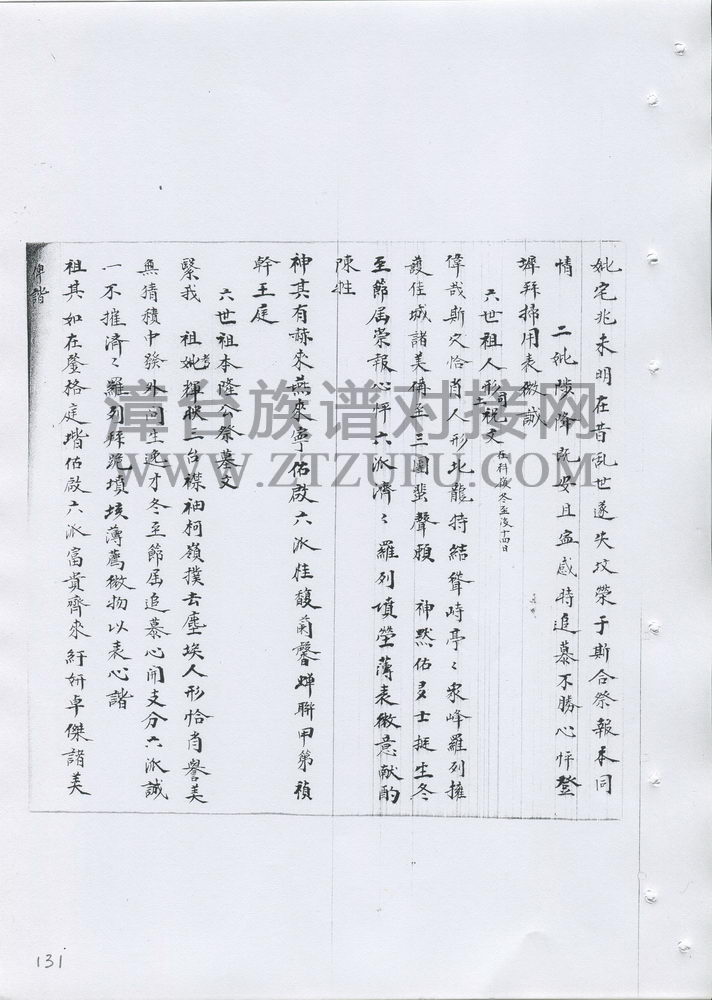 妣宅兆未明在昔乱世遂失坟榮于斯合祭報本同
情 二妣陟降既安且盈感時追慕不勝心怦登
墀拜掃用表微誠
六世祖人形司土祝文在科嶺冬至後十四日
偉哉斯穴恰肖人形北龍特結聳峙亭々眾峰羅列擁
護佳城諸美備至三圍蜚聲願 神默佑多士挺生冬
至節届崇報心怦六派濟々羅列墳塋薄表微意献酌
陳牲
神其有赫來燕來寧佑啟六派桂馥蘭馨蟬聯甲第禎
幹王庭
六世祖本隆公祭墓文
緊我 祖考妣輝映三台襟袖柯嶺撲去塵埃人形恰肖譽美
無猜積中發外间生逸才冬至節届追慕心開支分六派誠
一不摧濟々羅列拜跪墳垓薄薦微物以表心諧
祖其如在鑒格庭堦佑啟六派富貴齊來紆妍卓傑諸美
俾諧
131
漳台族谱对接网
WWW.ZTZUPU.COM